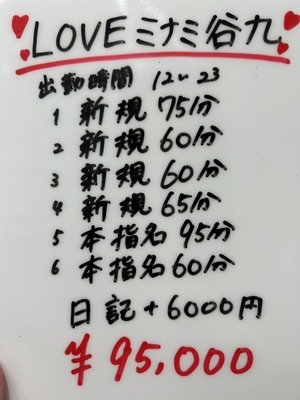 LOVEミナミ谷九
出勤時間 12〜23
1 新規 75分
2 新規 60分
3 新規 60分
4 新規 65分
5 本指名 95分
6 本指名 60分
日記+6000円
¥95,000